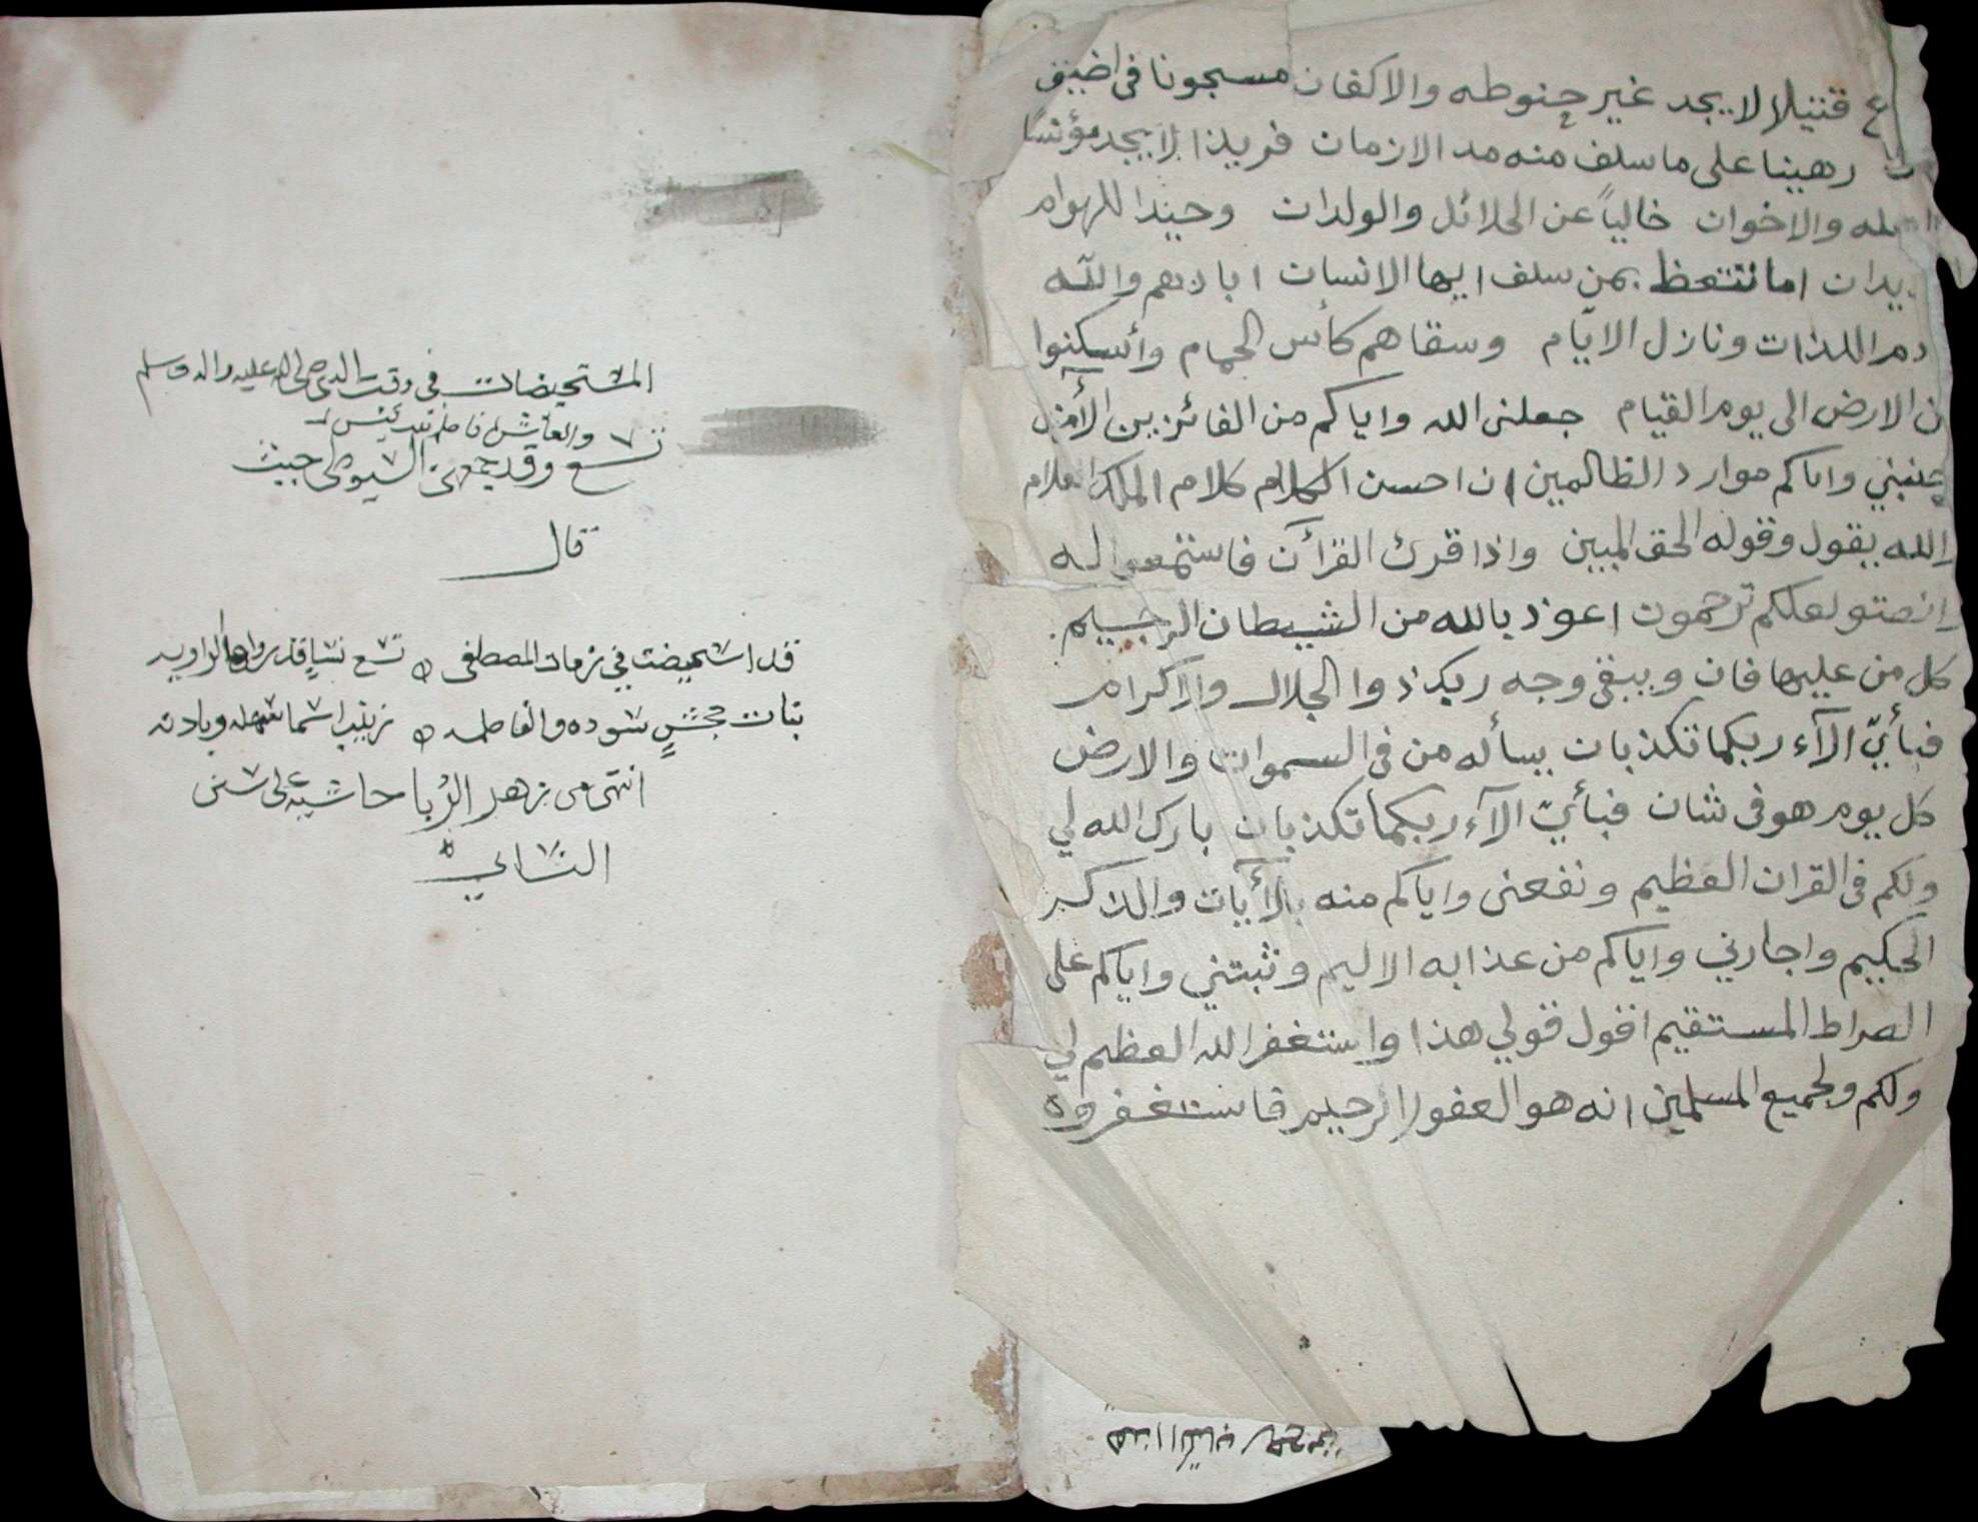 ع قتيلا لا يجد غير حنوطه والاكفان مسجونا في اضيق
رهينا على ما سلف منه مد الازمان فريدا لا يجد مؤنسا
والاخوان خالياً عن الحلائل والولدان وحيدا للهوام
يدان اما تتعظ بمن سلف ايها الانسان ابادهم والله
اللذات ونازل الايام وسقاهم كأس الحمام وأسكنوا
ن الارض الى يوم القيام جعلني الله واياكم من الفائزين الآمنين
جنبني واياكم موارد الظالمين ان احسن الكلام كلام الملك العلام
الله يقول وقوله الحق المبين واذا قرئ القرآن فاستمعوا له
وانصتو لعلكم ترحمون اعوذ بالله من الشيطان الرجيم
كل من عليها فان ويبقى وجه ربك ذوا الجلال والاكرام
فبأيّ الآء ربكما تكذبان يسأله من في السموات والارض
كل يوم هو في شان فبأيّ الآء ربكما تكذبان بارك الله لي
ولكم في القران العظيم ونفعني واياكم منه بالآيات والذكر
الحكيم واجارني واياكم من عذابه الاليم وثبتني واياكم على
الصراط المستقيم اقول قولي هذا واستغفر الله العظيم لي
ولكم ولجميع المسلمين انه هو الغفور الرحيم فاستغفروه
هذا الكتاب
المستحيضات في وقت النبي صلى الله عليه واله وسلم
تسع وقد جمعهن السيوطي حيث
قال
قد استحيضت في زمان المصطفى ه تسع نساء قد رواها الراويه
بنات جحش سوده والفاطمه ه زينب اسما سهله وباديه
انتهى من زهر الربا حاشيه على سنن
النسائي